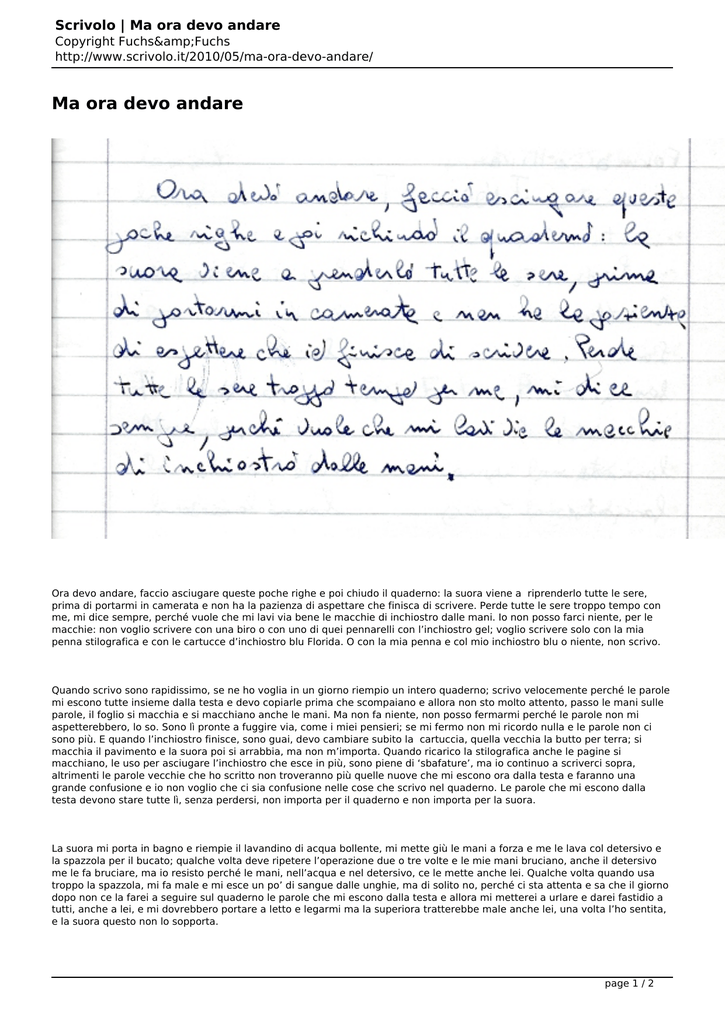 Scrivolo | Ma ora devo andare
Copyright Fuchs&amp;Fuchs
http://www.scrivolo.it/2010/05/ma-ora-devo-andare/
Ma ora devo andare
Ora devo andare, faccio asciugare queste
poche righe e poi richiudo il quaderno: la
suora viene a prenderlo tutte le sere, prima
di portarmi in camerata e non ha la pazienza
di aspettare che io finisca di scrivere. Perde
tutte le sere troppo tempo per me, mi dice
sempre, perché vuole che mi lavi via le macchie
di inchiostro dalle mani.
Ora devo andare, faccio asciugare queste poche righe e poi chiudo il quaderno: la suora viene a  riprenderlo tutte le sere,
prima di portarmi in camerata e non ha la pazienza di aspettare che finisca di scrivere. Perde tutte le sere troppo tempo con
me, mi dice sempre, perché vuole che mi lavi via bene le macchie di inchiostro dalle mani. Io non posso farci niente, per le
macchie: non voglio scrivere con una biro o con uno di quei pennarelli con l’inchiostro gel; voglio scrivere solo con la mia
penna stilografica e con le cartucce d’inchiostro blu Florida. O con la mia penna e col mio inchiostro blu o niente, non scrivo.
Quando scrivo sono rapidissimo, se ne ho voglia in un giorno riempio un intero quaderno; scrivo velocemente perché le parole
mi escono tutte insieme dalla testa e devo copiarle prima che scompaiano e allora non sto molto attento, passo le mani sulle
parole, il foglio si macchia e si macchiano anche le mani. Ma non fa niente, non posso fermarmi perché le parole non mi
aspetterebbero, lo so. Sono lì pronte a fuggire via, come i miei pensieri; se mi fermo non mi ricordo nulla e le parole non ci
sono più. E quando l’inchiostro finisce, sono guai, devo cambiare subito la  cartuccia, quella vecchia la butto per terra; si
macchia il pavimento e la suora poi si arrabbia, ma non m’importa. Quando ricarico la stilografica anche le pagine si
macchiano, le uso per asciugare l’inchiostro che esce in più, sono piene di ‘sbafature’, ma io continuo a scriverci sopra,
altrimenti le parole vecchie che ho scritto non troveranno più quelle nuove che mi escono ora dalla testa e faranno una
grande confusione e io non voglio che ci sia confusione nelle cose che scrivo nel quaderno. Le parole che mi escono dalla
testa devono stare tutte lì, senza perdersi, non importa per il quaderno e non importa per la suora.
La suora mi porta in bagno e riempie il lavandino di acqua bollente, mi mette giù le mani a forza e me le lava col detersivo e
la spazzola per il bucato; qualche volta deve ripetere l’operazione due o tre volte e le mie mani bruciano, anche il detersivo
me le fa bruciare, ma io resisto perché le mani, nell’acqua e nel detersivo, ce le mette anche lei. Qualche volta quando usa
troppo la spazzola, mi fa male e mi esce un po’ di sangue dalle unghie, ma di solito no, perché ci sta attenta e sa che il giorno
dopo non ce la farei a seguire sul quaderno le parole che mi escono dalla testa e allora mi metterei a urlare e darei fastidio a
tutti, anche a lei, e mi dovrebbero portare a letto e legarmi ma la superiora tratterebbe male anche lei, una volta l’ho sentita,
e la suora questo non lo sopporta.
page 1 / 2